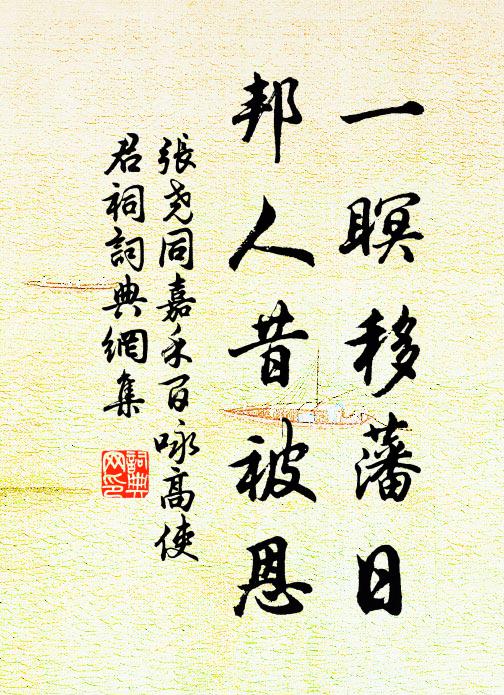 一瞑移藩日
邦人昔被恩
張尧同嘉禾百咏高使
君祠詞典網集
詞典网印